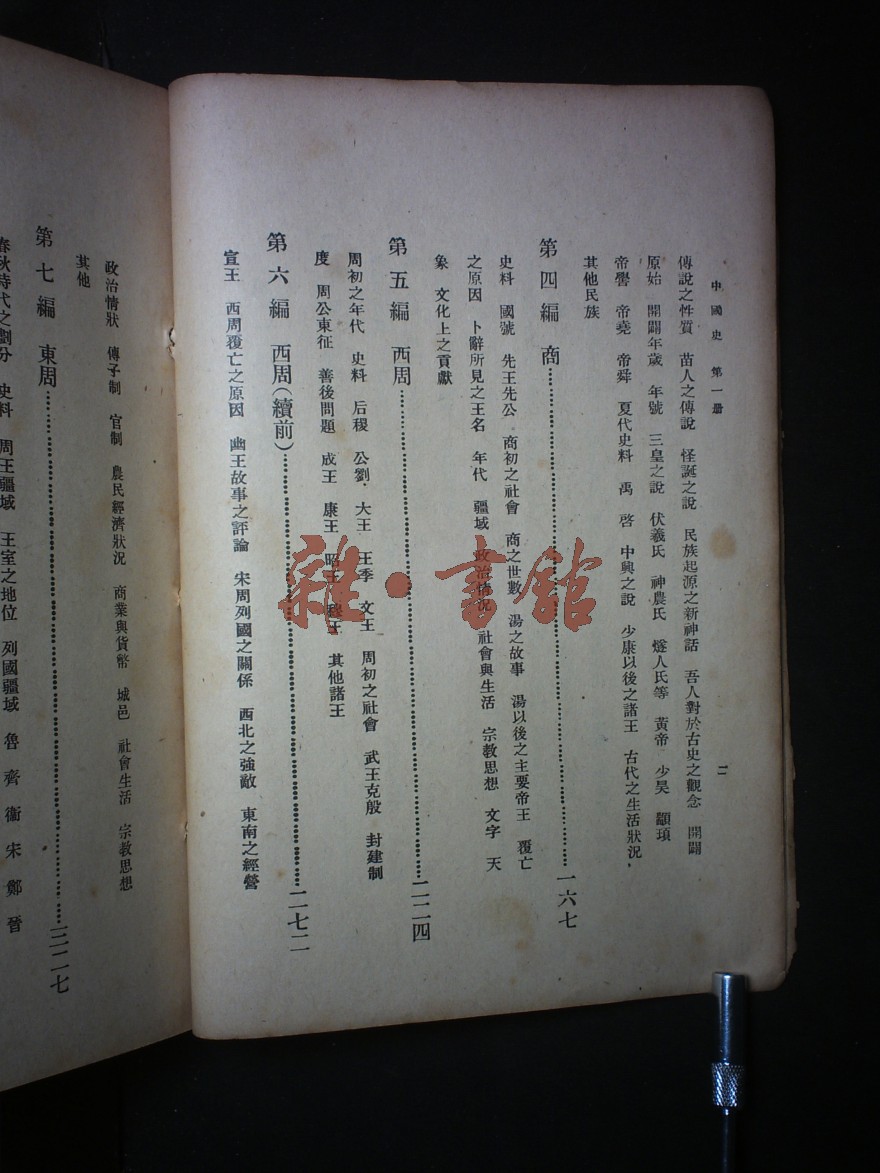 中國史 第一册
二
傳說之性質 苗人之傳說 怪誕之說 民族起源之新神話 吾人對於古史之觀念 開闢
原始 開闢年歲 年號 三皇之說 伏羲氏 神農氏 燧人氏等 黃帝 少昊 顓頊
帝嚳 帝堯 帝舜 夏代史料 禹 啓 中興之說 少康以後之諸王 古代之生活狀況
其他民族
第四編 商……一六七
史料 國號 先王先公 商初之社會 商之世數 湯之故事 湯以後之主要帝王 覆亡
之原因 卜辭所見之王名 年代 疆域 政治情況 社會與生活 宗教思想 文字 天
象 文化上之貢獻
第五編 西周……二二四
周初之年代 史料 后稷 公劉 大王 王季 文王 周初之社會 武王克殷 封建制
度 周公東征 善後問題 成王 康王 昭王 穆王 其他諸王
第六編 西周(續前)……二七二
宣王 西周覆亡之原因 幽王故事之評論 宋周列國之關係 西北之強敵 東南之經營
政治情狀 傳子制 官制 農民經濟狀況 商業與貨幣 城邑 社會生活 宗教思想
其他
第七編 東周……三二七
春秋時代之劃分 史料 周王疆域 王室之地位 列國疆域 魯 齊 衞 宋 鄭 晉
雜·書館